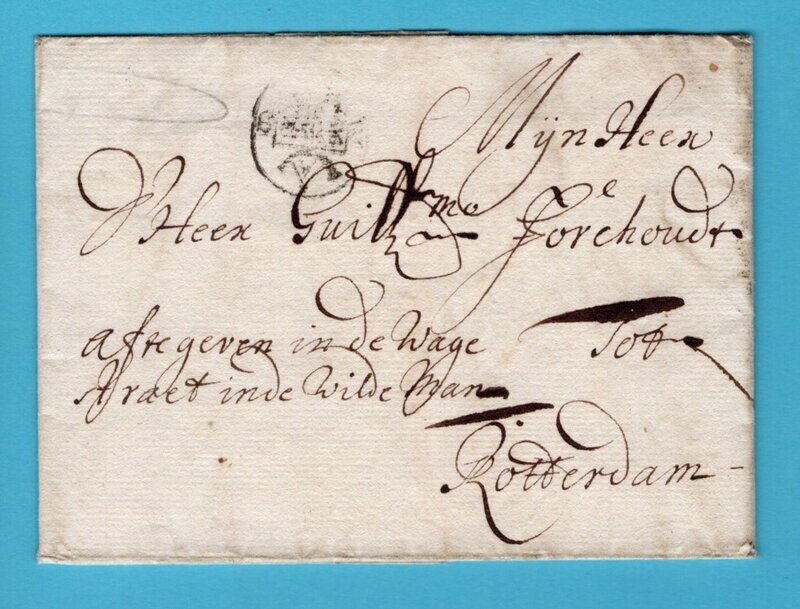 Mÿn Heer
D'Heer Guill^mo Forchoudt
afte geven in de Wage Tot
straet in de Wilde Man
Rotterdam